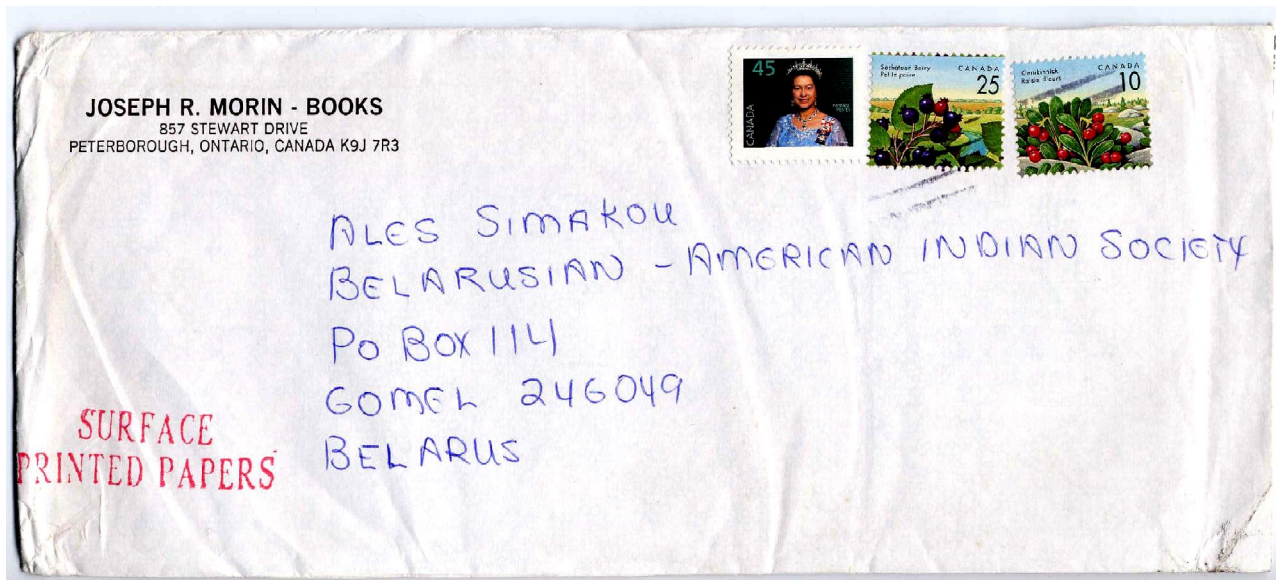 JOSEPH R. MORIN - BOOKS
857 STEWART DRIVE
PETERBOROUGH, ONTARIO, CANADA K9J 7R3
45
CANADA
POSTAGE
POSTES
Saskatoon Berry
Petite poire
CANADA
25
Kinnikinnick
Raisin d'ours
CANADA
10
ALES SIMAKOU
BELARUSIAN - AMERICAN INDIAN SOCIETY
PO BOX 114
GOMEL 246049
BELARUS
SURFACE
PRINTED PAPERS